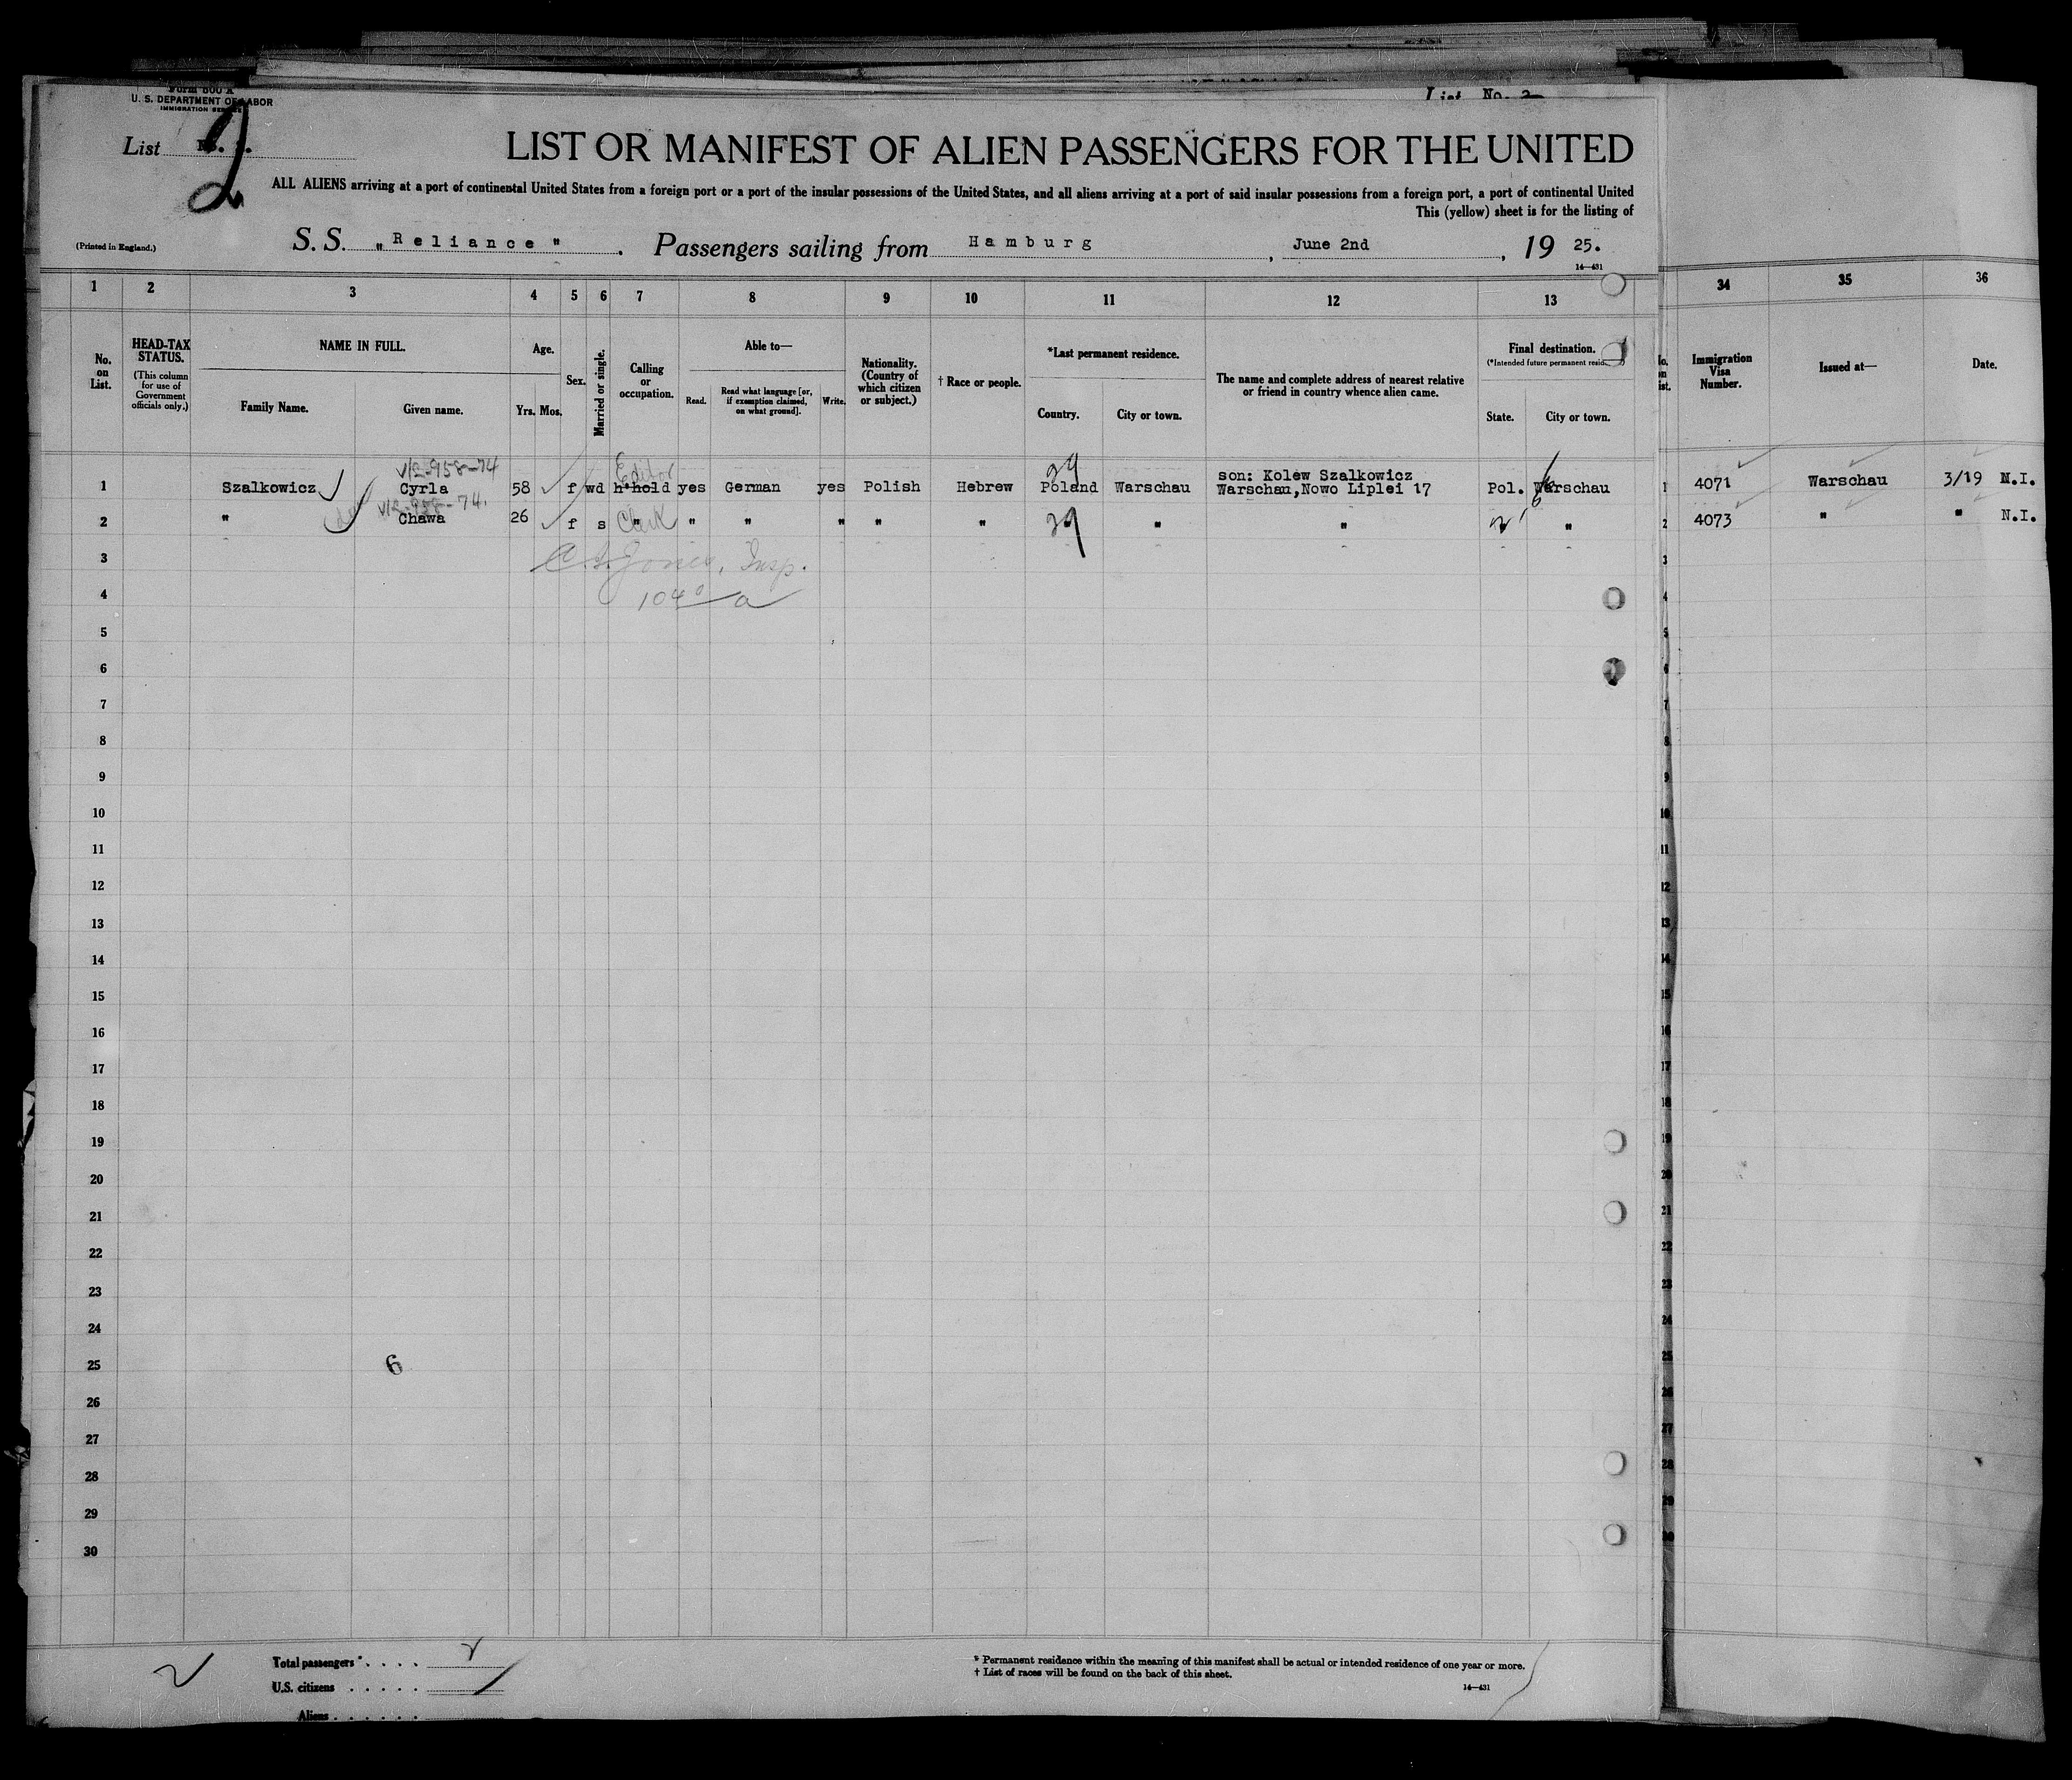 Form 500 A
U. S. DEPARTMENT OF LABOR
IMMIGRATION SERVICE
List No. 2
List 2
LIST OR MANIFEST OF ALIEN PASSENGERS FOR THE UNITED
ALL ALIENS arriving at a port of continental United States from a foreign port or a port of the insular possessions of the United States, and all aliens arriving at a port of said insular possessions from a foreign port, a port of continental United
This (yellow) sheet is for the listing of
(Printed in England.)
S. S. "Reliance". Passengers sailing from Hamburg, June 2nd, 19 25.
14—431
1 2 3 4 5 6 7 8 9 10 11 12 13 34 35 36
No. on List.
HEAD-TAX STATUS.
(This column for use of Government officials only.)
NAME IN FULL.
Family Name. Given name.
Age.
Yrs. Mos.
Sex.
Married or single.
Calling or occupation.
Able to—
Read. Read what language [or, if exemption claimed, on what ground]. Write.
Nationality. (Country of which citizen or subject.)
† Race or people.
*Last permanent residence.
Country. City or town.
The name and complete address of nearest relative or friend in country whence alien came.
Final destination.
(*Intended future permanent
State. City or town.
Immigration Visa Number.
Issued at—
Date.
V12-958-74 Editor 29
1 Szalkowicz Cyrla 58 f wd h'hold yes German yes Polish Hebrew Poland Warschau son: Kolew Szalkowicz Warschau,Nowo Liplei 17 Pol. Warschau 1 4071 Warschau 3/19 N.I.
V12-958-74. Clerk 29
2 " Chawa 26 f s " " " " " " " " " " 2 4073 " " N.I.
3 C. S. Jones, Insp.
4 10400 a
5
6
7
8
9
10
11
12
13
14
15
16
17
18
19
20
21
22
23
24
25 6
26
27
28
29
30
2 Total passengers . . . . 2
U.S. citizens . . . . .
Aliens . . . . . .
* Permanent residence within the meaning of this manifest shall be actual or intended residence of one year or more.
† List of races will be found on the back of this sheet.
14—431